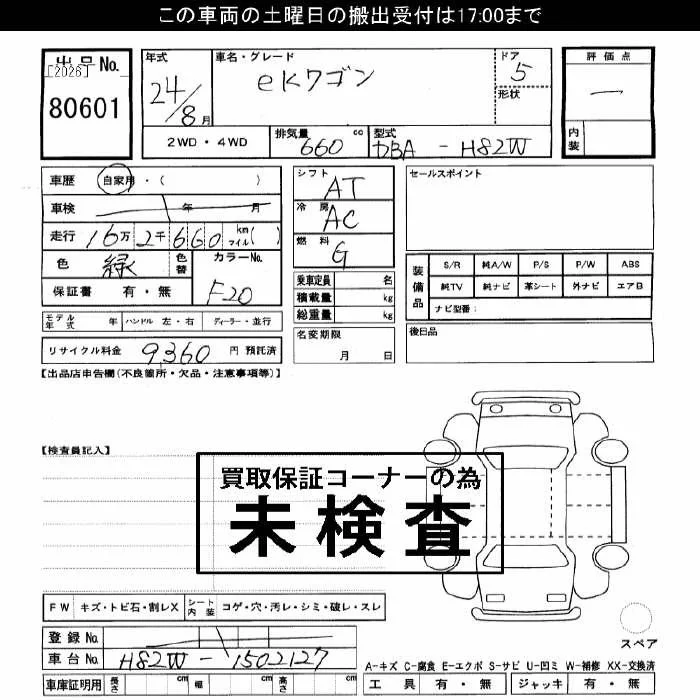 この車両の土曜日の搬出受付は17:00まで
出品No.
[2026]
80601
年式
24/8月
車名・グレード
eKワゴン
ドア
5
形状
評価点
一
内装
2WD・4WD
排気量
660 cc
型式
DBA - H82W
車歴 自家用・( )
車検 年 月
走行 16万2千660 km マイル( )
色 緑 色替
カラーNo.
F20
保証書 有・無
シフト
AT
冷房
AC
燃料
G
乗車定員 名
積載量 kg
総重量 kg
名変期限
月 日
セールスポイント
装備品
S/R 純A/W P/S P/W ABS
純TV 純ナビ 革シート 外ナビ エアB
ナビ型番:
後日品
モデル年式 年 ハンドル 左・右 ディーラー・並行
リサイクル料金 9,360 円 預託済
【出品店申告欄(不良箇所・欠品・注意事項等)】
【検査員記入】
買取保証コーナーの為
未検査
FW キズ・トビ石・割レX シート内装 コゲ・穴・汚レ・シミ・破レ・スレ
登録No.
車台No. H82W - 1502127
車庫証明用 長さ cm 幅 cm 高さ cm
スペア
A-キズ C-腐食 E-エクボ S-サビ U-凹ミ W-補修 XX-交換済
工具 有・無 ジャッキ 有・無